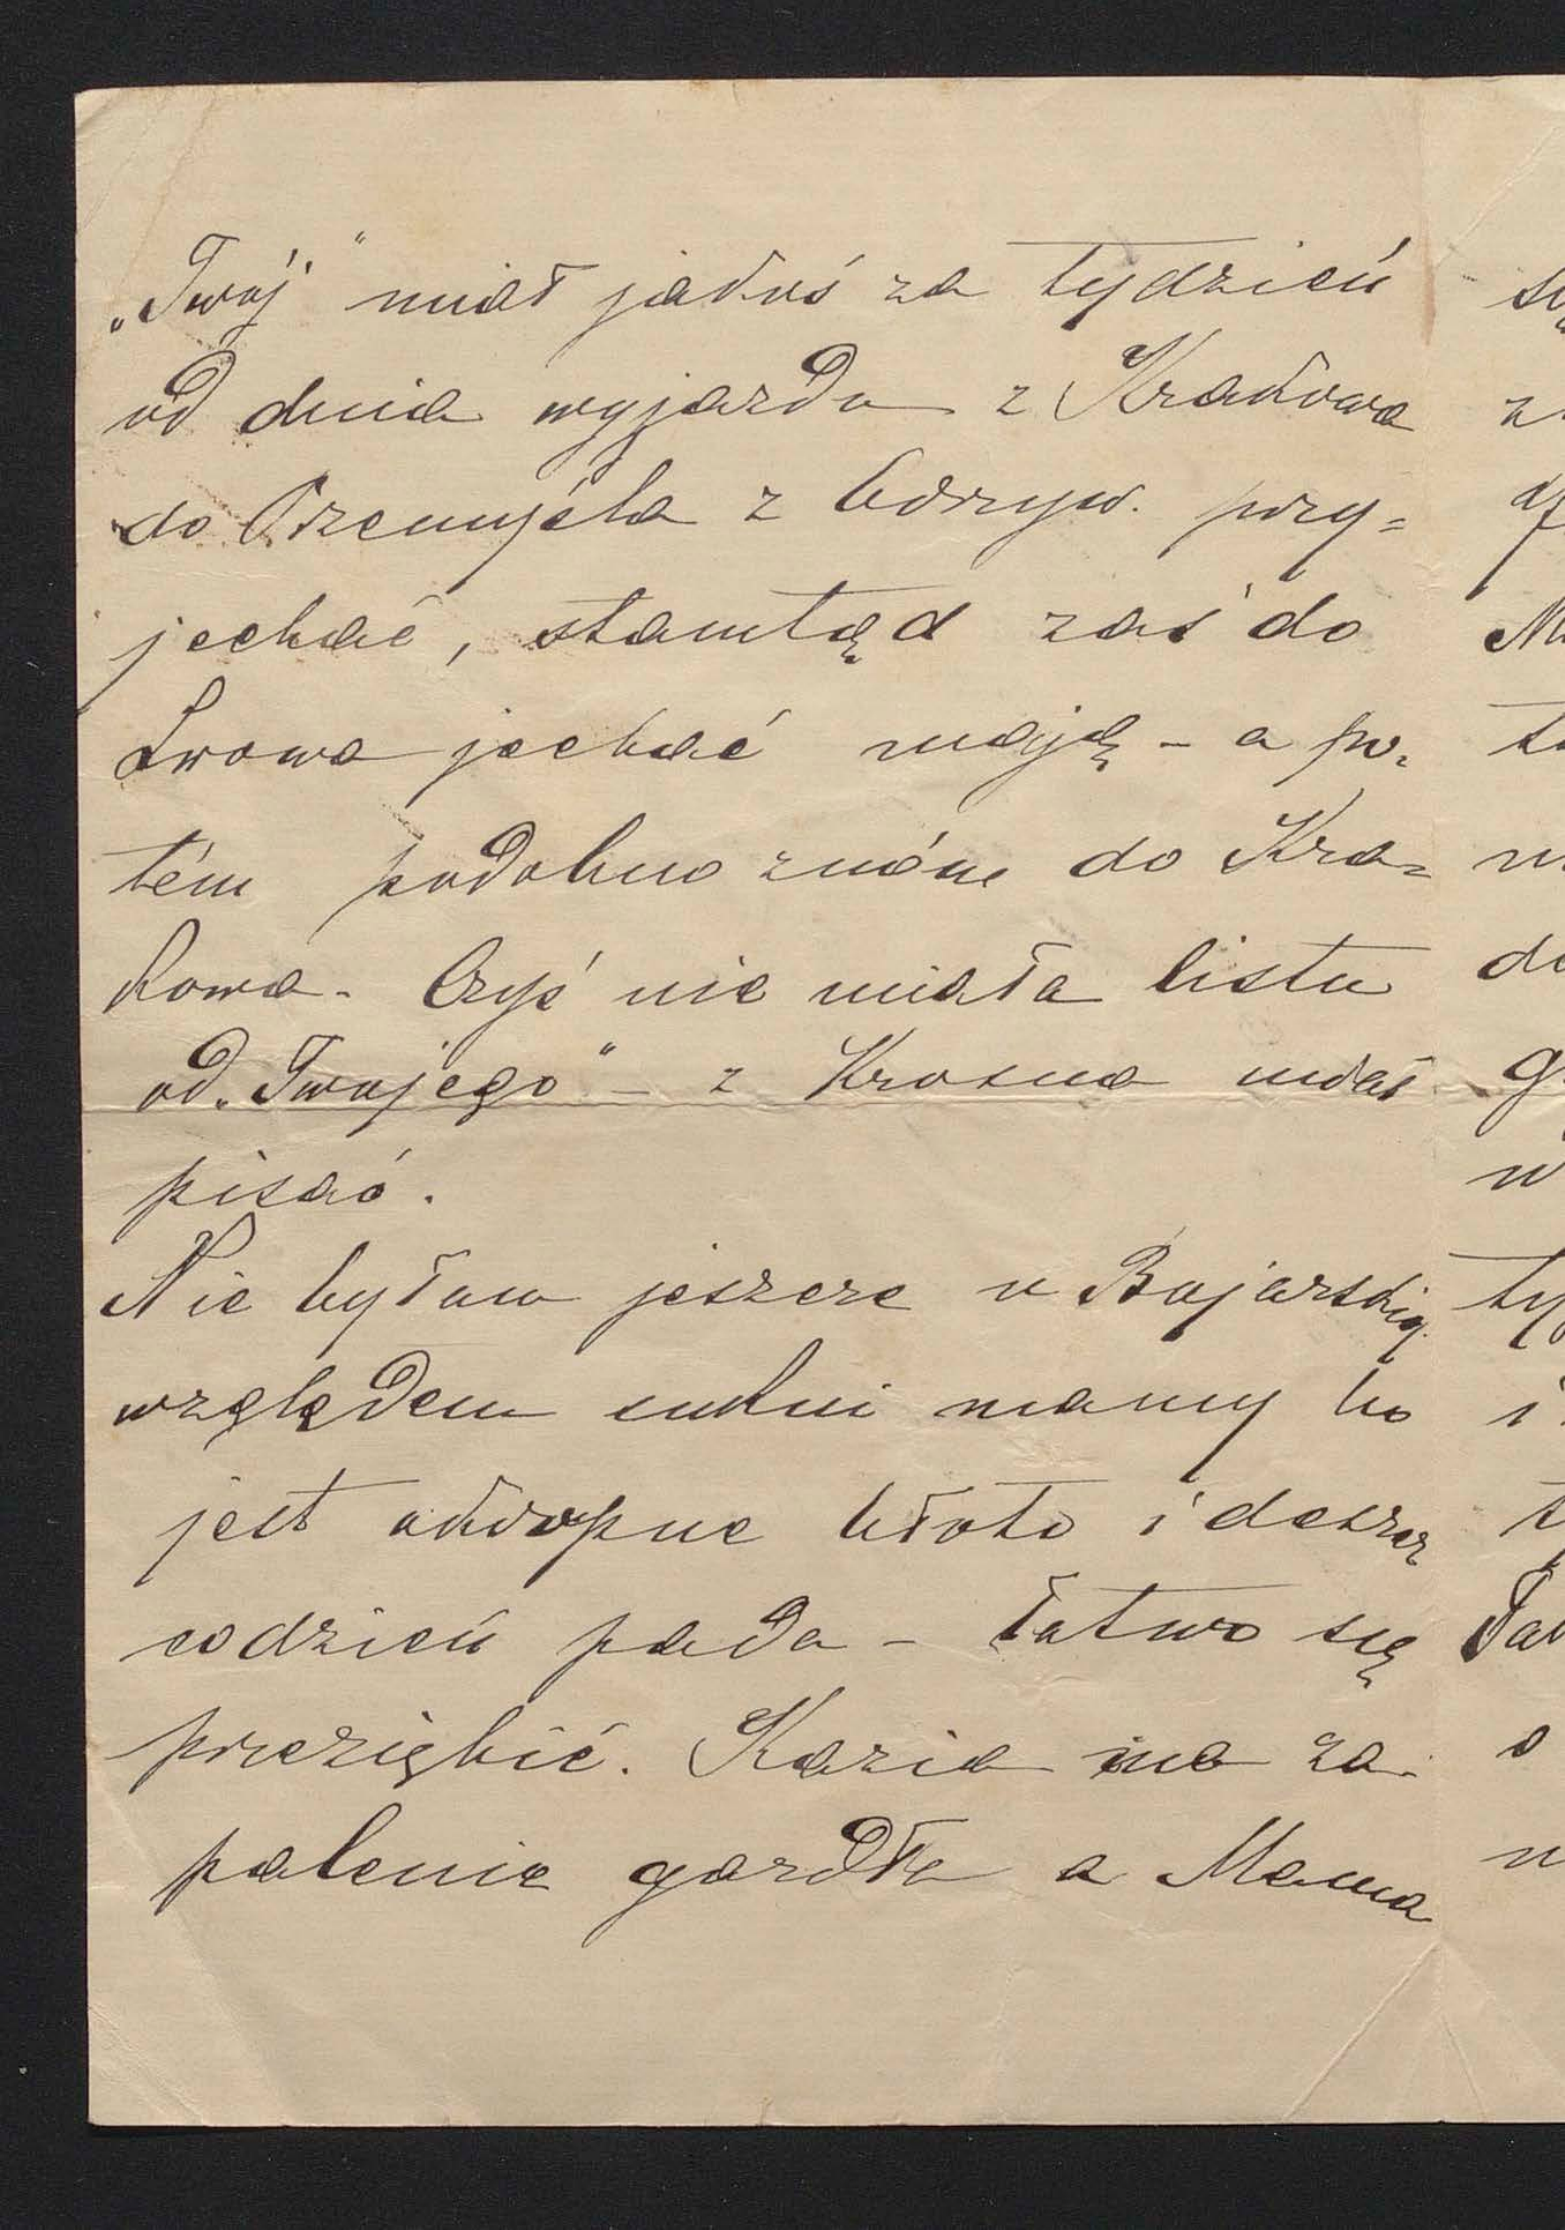 „Twój" miał jakoś za tydzień
od dnia wyjazdu z Krakowa
do Przemyśla z przy=
jechać, stamtąd zaś do
Lwowa jechać mają - a po-
tém podobno znów do Kra=
kowa. Czyś nie miała listu
od „Twojego" - z Krosna miał
pisać.
Nie byłam jeszcze u Bojarskiej
względem sukni mamy bo
jest okropne błoto i deszcz
codzień pada - łatwo się
przeziębić. Kazia ma za-
palenie gardła a Mama